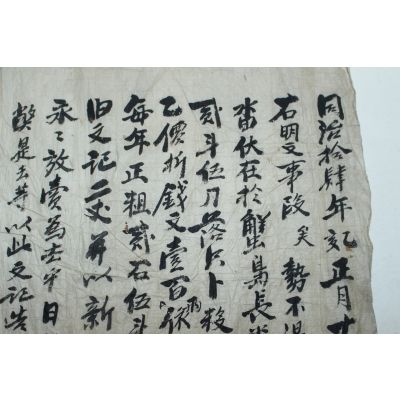 同治拾肆年 正月十
右明文事段矣勢不
畓伏在於蟹島員
貳斗伍刀落只卜数
乙價折錢文壹百
每年正租貳石伍斗
旧文記二丈并以新
永〻放賣為去乎日
獘是去等以此文記告